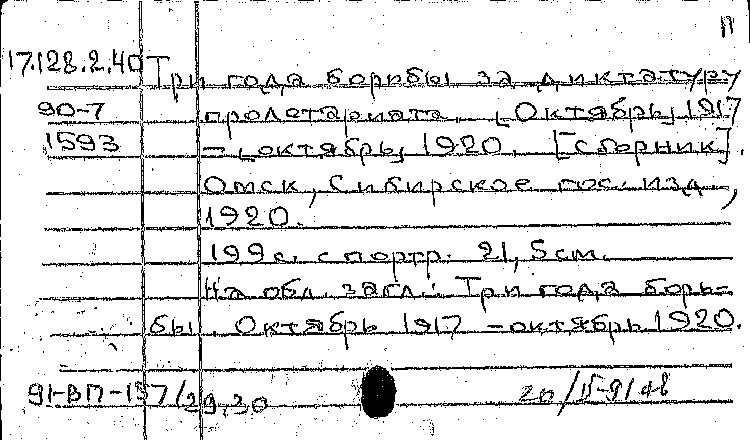 П
17.128.2.40 Три года борьбы за диктатуру
90-7 пролетариата. [Октябрь] 1917
1593 - [октябрь] 1920. [Сборник].
Омск, Сибирское гос. изд,
1920.
199 с. с портр. 21,5 см.
На обл. загл.: Три года борь-
бы. Октябрь 1917 - октябрь 1920.
91-ВП-137/29,30